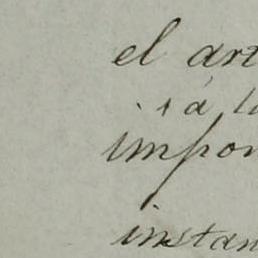 el art
á l
impon
instan